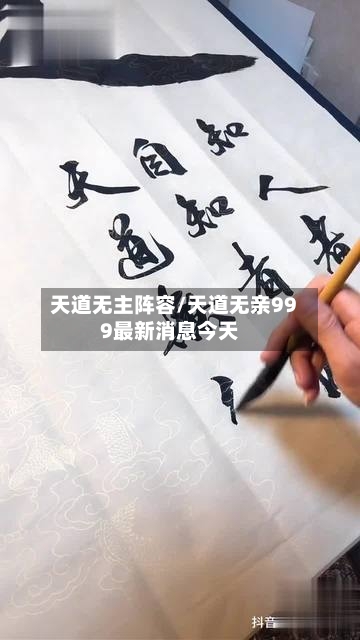 知人者
自知者
天道
天道无主阵容/天道无亲99
9最新消息今天
抖音